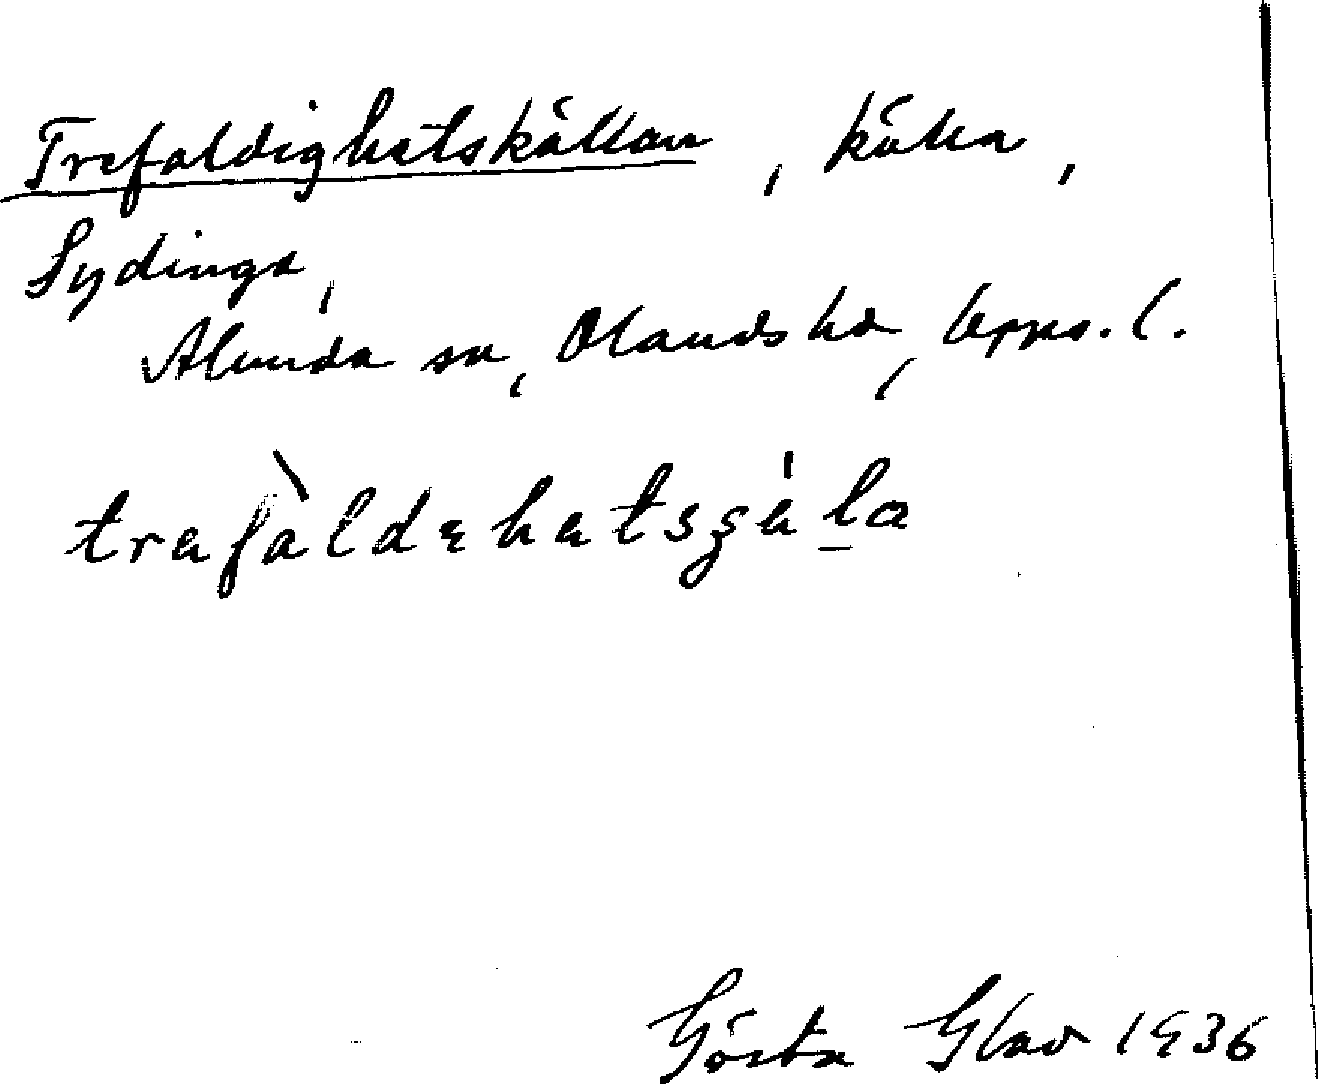 Trefaldighetskällan, källa,
Sydinge,
Alunda sn, Olands hd, Upps. l.
trefàldεhetsʂé̱la
Gösta Glad 1936